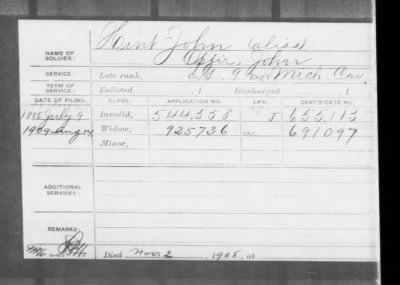 Hint John (alias)
NAME OF SOLDIER: Offir, John
SERVICE: Late rank, 9 Reg't Mich Cav
TERM OF SERVICE: Enlisted , 1 Discharged , 1
DATE OF FILING. CLASS. APPLICATION NO. LAW. CERTIFICATE NO.
1885 July 9 Invalid, 544,558 J 655,113
1909 Aug 14 Widow, 925736 691097
Minor,
ADDITIONAL SERVICES:
REMARKS:
Died Nov 2 , 1908, at